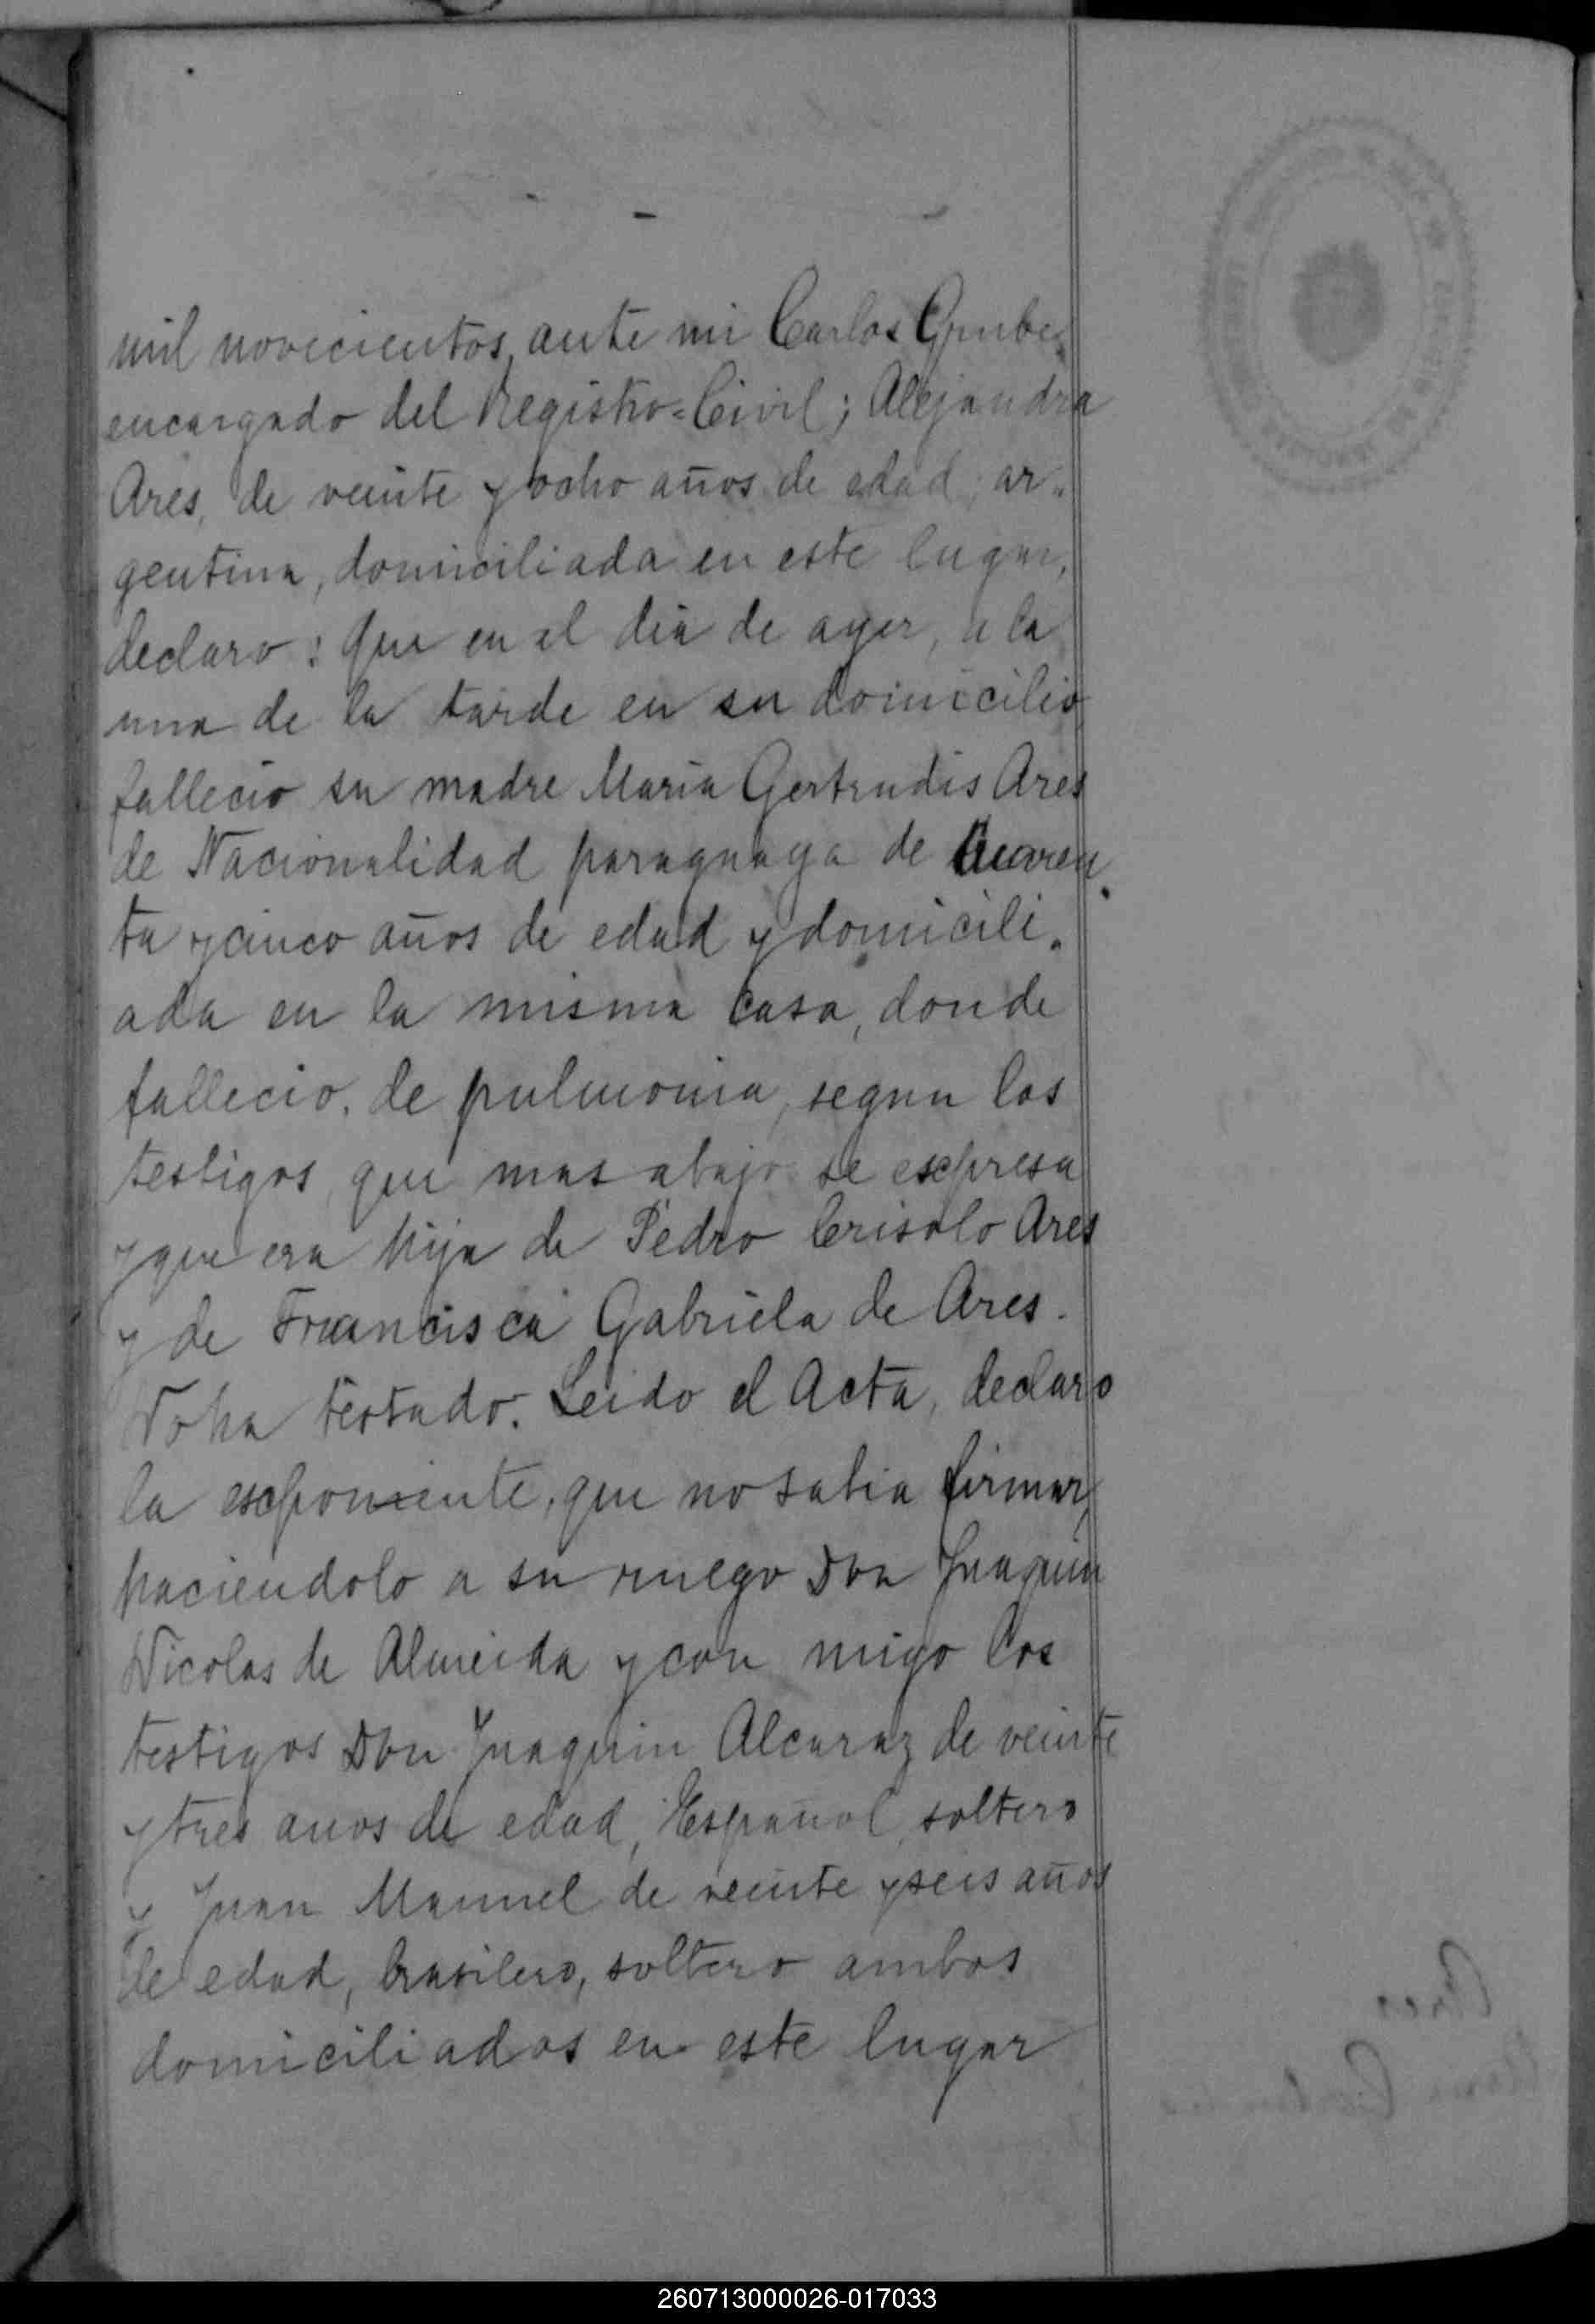 mil novecientos, ante mi Carlos Grube,
encargado del Registro=Civil; Alejandra
Ares, de veinte y ocho años de edad, ar„
gentina, domiciliada en este lugar,
declaro: Que en el dia de ayer, a la
una de la tarde en su domicilio
fallecio su madre Maria Gertrudis Ares
de Nacionalidad paraguaya de cuaren„
ta y cinco años de edad y domicili„
ada en la misma casa, donde
fallecio, de pulmonia, segun los
testigos, que mas abajo se espresa
y que era hija de Pedro Crisolo Ares
y de Francisca Gabriela de Ares.
No ha testado. Leido el Acta, declaro
la esponente, que no sabia firmar,
haciendolo a su ruego Don Juaquin
Nicolas de Almeida y con migo los
testigos Don Juaquin Alcaraz de veinte
y tres anos de edad, Español, soltero
y Juan Manuel de veinte y seis años
de edad, brasilero, soltero ambos
domiciliados en este lugar
260713000026-017033